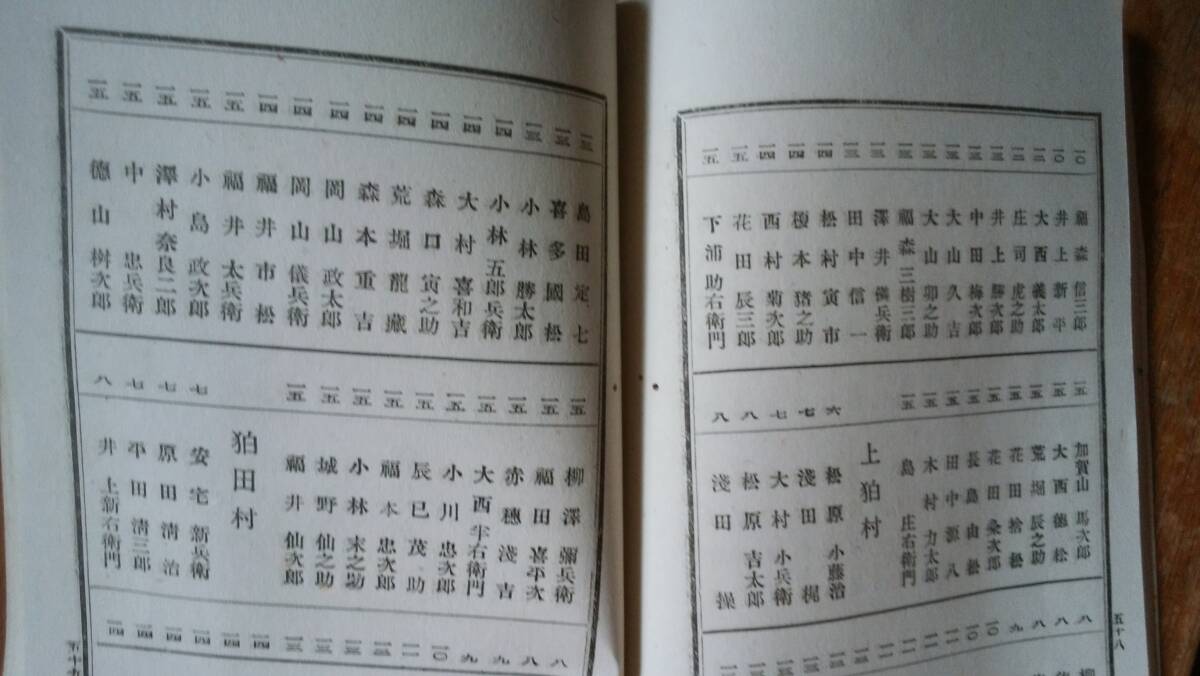 五十八
一〇 福森信三郎
一〇 井上新平
一二 大西義太郎
一二 庄司虎之助
一三 井上勝次郎
一三 中田梅次郎
一三 大山久吉
一三 大山卯之助
一三 福森三樹三郎
一三 澤井儀兵衛
一三 田中信一
一四 松村寅市
一四 榎本猪之助
一四 西村菊次郎
一五 花田辰三郎
一五 下浦助右衛門
一五 加賀山馬次郎
一五 大西德松
一五 荒堀辰之助
一五 花田捨松
一五 花田粂次郎
一五 長島由松
一五 田中源八
一五 木村力太郎
一五 島庄右衛門
上狛村
六 松原小藤治
七 淺田梶
七 大村小兵衛
八 松原吉太郎
八 淺田操
八
八
八
九
九
一〇
一〇
一三 島田定七
一三 喜多國松
一三 小林勝太郎
一四 小林五郎兵衛
一四 大村喜和吉
一四 森口寅之助
一四 荒堀龍藏
一四 森本重吉
一四 岡山政太郎
一四 岡山儀兵衛
一四 福井市松
一五 福井太兵衛
一五 小島政次郎
一五 澤村奈良二郎
一五 中忠兵衛
一五 德山樹次郎
一五 柳澤彌兵衛
一五 福田喜平次
一五 赤穗淺吉
一五 大西半右衛門
一五 小川忠次郎
一五 辰巳茂助
一五 福本忠次郎
一五 小林末之助
一五 城野仙之助
一五 福井仙次郎
狛田村
七 安宅新兵衛
七 原田淸治
七 平田淸三郎
八 井上新右衛門
八
八
九
九
一〇
一一
一二
一三
一三
一四
一四
一四
一四
一四